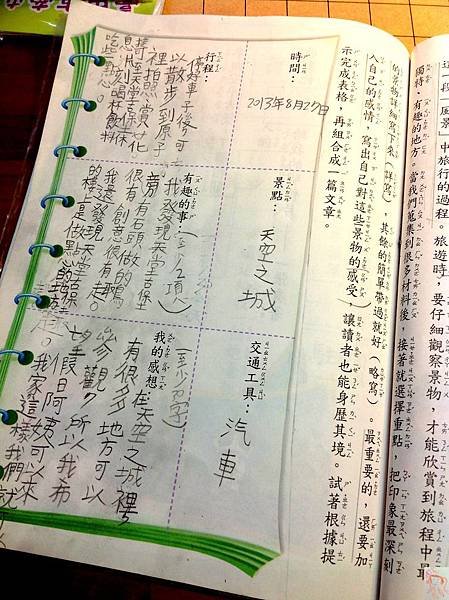 這一段「風景」中旅行的過程。旅遊時,要仔細觀察景物,才能欣賞到旅程中最
獨特、有趣的地方。當我們蒐集到很多材料後,接著就選擇重點,把印象最深刻
的景物詳細寫下來(詳寫),其餘的簡單帶過就好(略寫)。最重要的,還要加
入自己的感情,寫出自己對這些景物的感受,讓讀者也能身歷其境。試著根據提
示完成表格,再組合成一篇文章。
時間:
2013年8月27日
景點:
天空之城
交通工具:
汽車
行程:
停好車子後可
以散步到原子
裡拍照賞花
天堂吉保
息喝杯飲料
吃些點心。
有趣的事:(1~2項)
我發現天堂吉保
旁有石頭做的鵝
很有創意很有趣。
我還發現天堂吉保
的樓上是做點心的地
我的感想:
在天空之城裡
有很多地方可以
參觀,所以我希
望假日阿姨可以來
我家這樣我們就可以